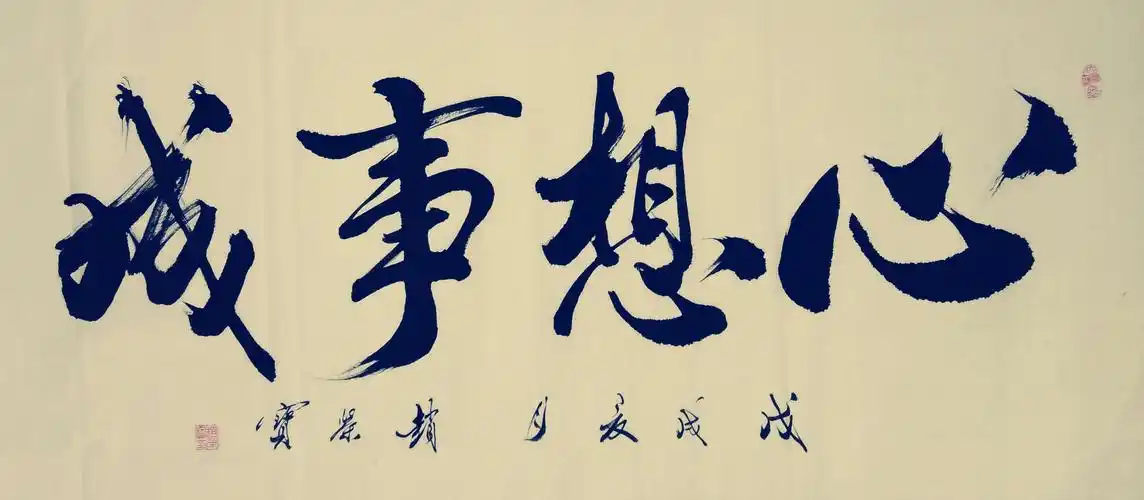 心想事成
戊戌夏月 趙景寶